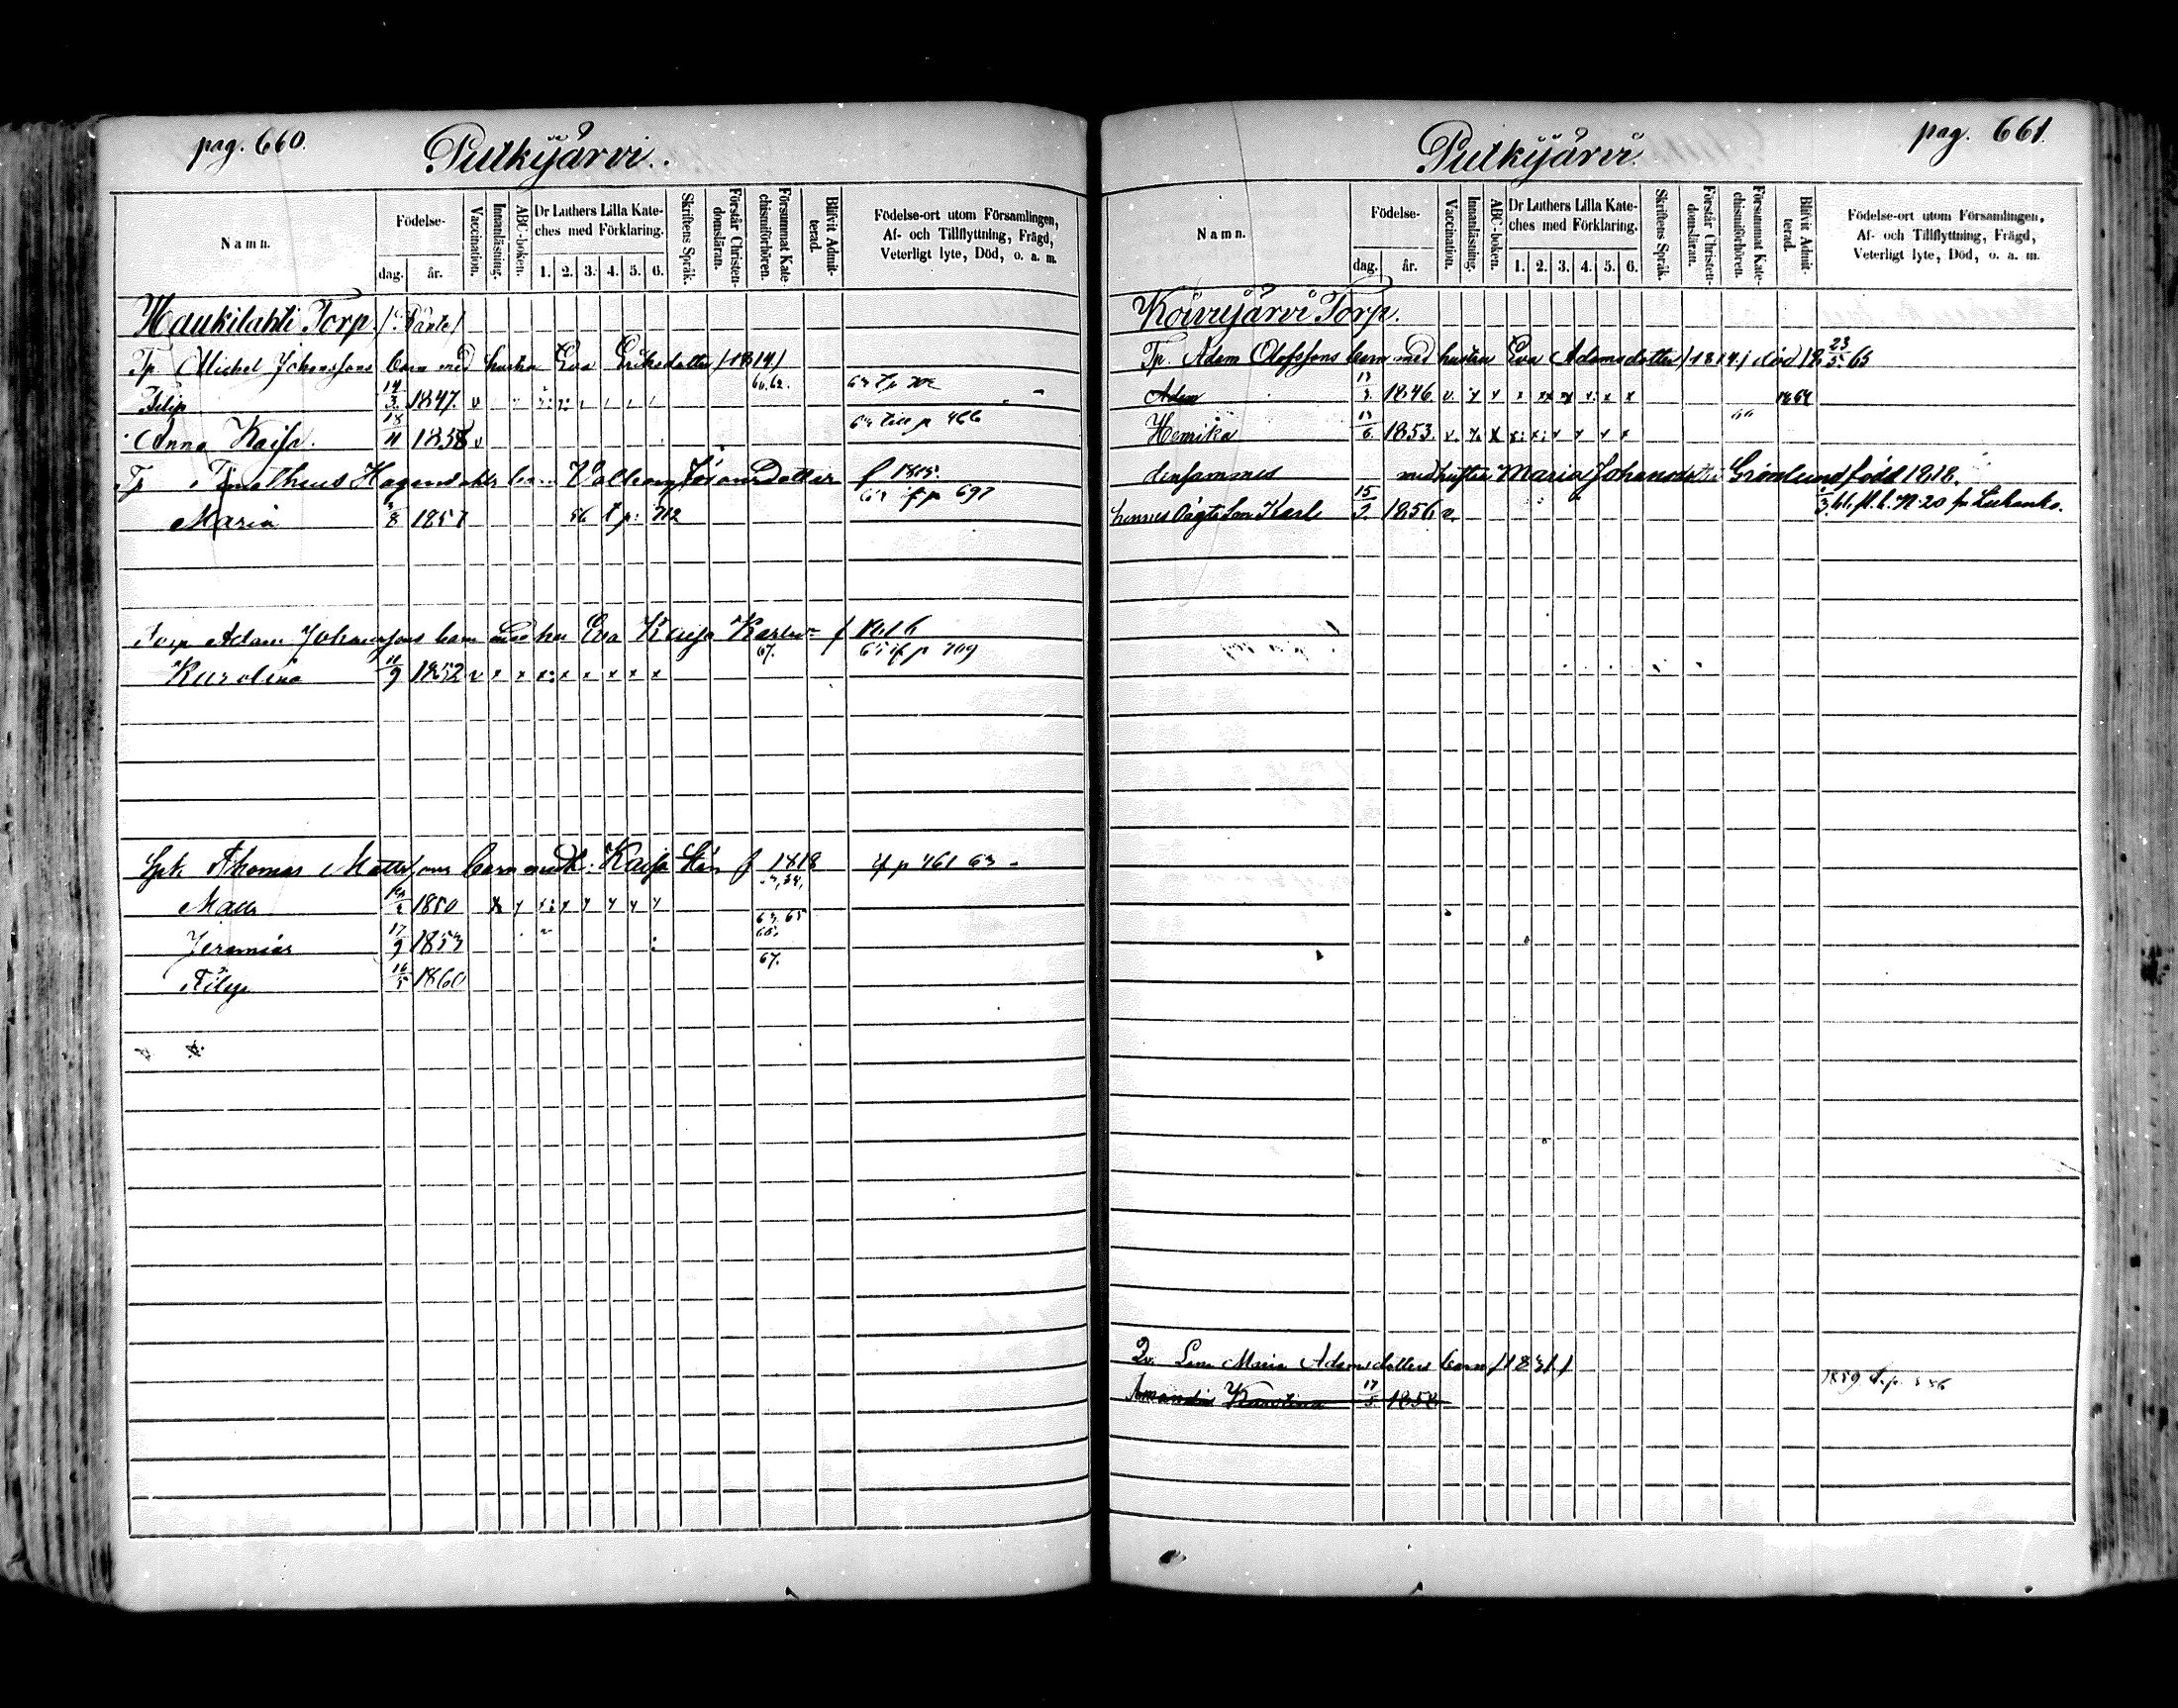 pag. 660.
Putkijärvi.
Namn.
Födelse-
dag.
år.
Vaccination.
Innanläsning.
ABC-boken.
Dr Luthers Lilla Kate-
ches med Förklaring.
1. 2. 3. 4. 5. 6.
Skriftens Språk.
Förstår Christen-
domsläran.
Försummat Kate-
chismiförhören.
Blifvit Admit-
terad.
Födelse-ort utom Församlingen,
Af- och Tillflyttning, Frägd,
Veterligt lyte, Död, o. a. m.
Haukilahti Torp.
Tp Michel Johanssons barn med hustru Eva Eriksdotter /1814/
Filip 14/3 1847. v 61.62.
Anna Kaisa. 18/11 1858 v till p 466
Tp Timotheus Hagendahls barn Valborg Göransdotter f 1815.
Maria 3/8 1857 56 t p: 712 p 697
Torp Adam Johanssons barn med hu Eva Kaisa Karlsdr f 1816
Karolina 11/9 1852 v x x x: x x x x x 67. p 709
Thomas Mattssons barn med h: Kaisa f 1818 p 461 63
Matts 1850 x x x: x x x x x
Jeremias 17/9 1853 63. 65
Filip 16/5 1860 67.
pag. 661.
Putkijärvi.
Namn.
Födelse-
dag.
år.
Vaccination.
Innanläsning.
ABC-boken.
Dr Luthers Lilla Kate-
ches med Förklaring.
1. 2. 3. 4. 5. 6.
Skriftens Språk.
Förstår Christen-
domsläran.
Försummat Kate-
chismiförhören.
Blifvit Admit-
terad.
Födelse-ort utom Församlingen,
Af- och Tillflyttning, Frägd,
Veterligt lyte, Död, o. a. m.
Koivujärvi Torp.
Tp. Adam Olofssons barn med hustru Eva Adamsdotter /1814./ död 18 23/5. 65
Adam 1846 v. x x x xx xx x x x 1864
Henrika 13/6 1853. v. x. x x: x: x x x x
densammes med hustru Maria Johansdotter Grönlund född 1818.
hennes oägta son Karl 15/ 1856 v.
Lena Maria Adamsdotters barn
Amanda Karolina 17/5 1858
1859